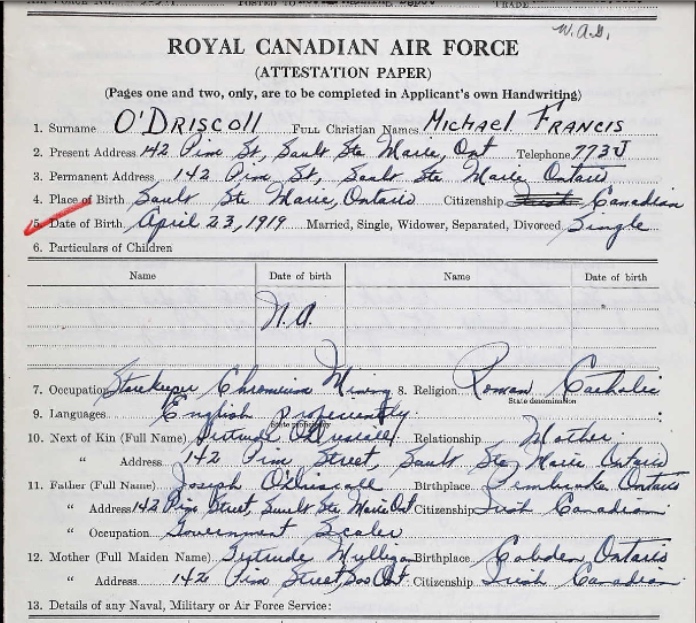 W.A.G.
ROYAL CANADIAN AIR FORCE
(ATTESTATION PAPER)
(Pages one and two, only, are to be completed in Applicant's own Handwriting)
1. Surname O'DRISCOLL Full Christian Names MICHAEL FRANCIS
2. Present Address 142 Pim St, Sault Ste Marie, Ont Telephone 773J
3. Permanent Address 142 Pim St, Sault Ste Marie Ontario
4. Place of Birth Sault Ste Marie, Ontario Citizenship Irish Canadian
5. Date of Birth April 23, 1919 Married, Single, Widower, Separated, Divorced Single
6. Particulars of Children
Name Date of birth Name Date of birth
N.A.
7. Occupation Storekeeper Chromium Mining 8. Religion Roman Catholic
State denomination
9. Languages English Proficiently
State proficiency
10. Next of Kin (Full Name) Gertrude O'Driscoll Relationship Mother
" Address 142 Pim Street, Sault Ste Marie Ontario
11. Father (Full Name) Joseph O'Driscoll Birthplace Pembroke Ontario
" Address 142 Pim Street, Sault Ste Marie Ont Citizenship Irish Canadian
" Occupation Government Scaler
12. Mother (Full Maiden Name) Gertrude Mulligan Birthplace Cobden Ontario
" Address 142 Pim Street, Soo Ont. Citizenship Irish Canadian
13. Details of any Naval, Military or Air Force Service: